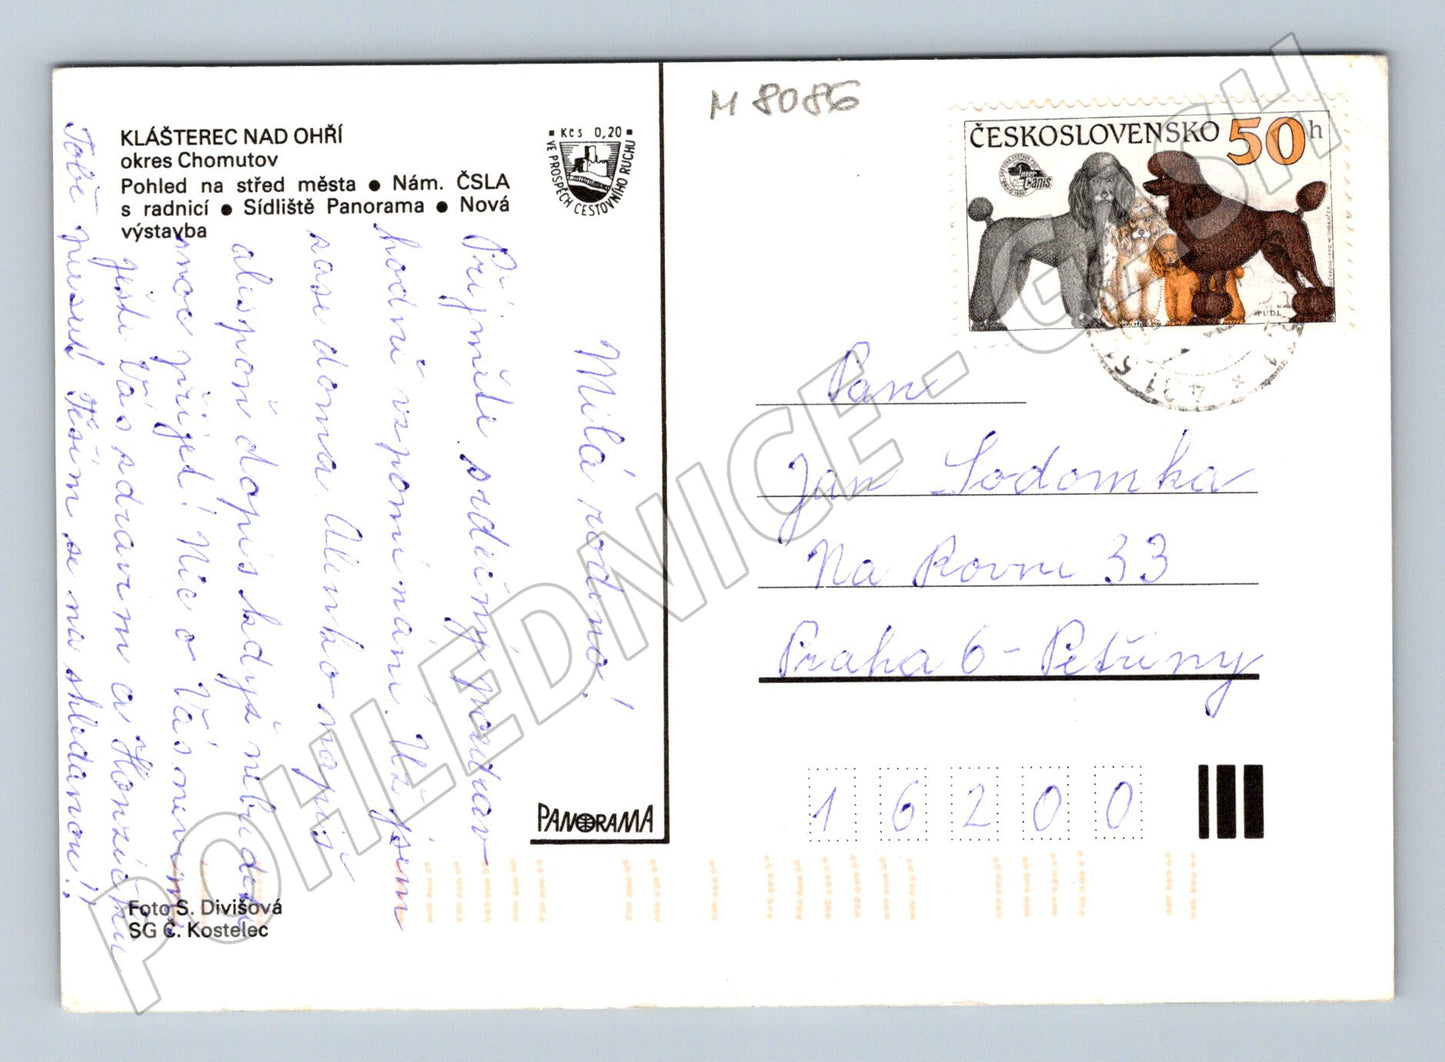 KLÁŠTEREC NAD OHŘÍ
okres Chomutov
Pohled na střed města ● Nám. ČSLA
s radnicí ● Sídliště Panorama ● Nová
výstavba
Kčs 0,20
VE PROSPĚCH CESTOVNÍHO RUCHU
M 8086
ČESKOSLOVENSKO 50 h
Inter Canis
PUDL
Milá rodino!
Přijměte srdečný pozdrav
hodně vzpomínání. Už jsem
zase doma. Alenko napiš
alespoň dopis když nebudeš
moc přijet! Nic o Vás nevím
ještě Vás zdravím a Honzíčku
Tobě pusu! Těším se na shledanou!!
Paní
Jan Sodomka
Na Rovni 33
Praha 6 - Petřiny
16200
PANORAMA
Foto S. Divišová
SG Č. Kostelec
POHLEDNICE - GASH